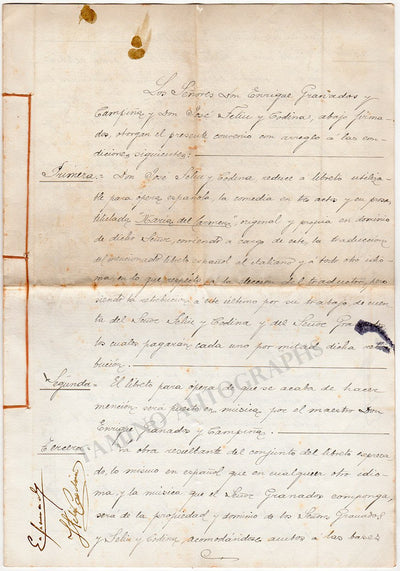 Los Señores Don Enrique Grañados y
Campiña y Don José Feliu y Codina, abajo firma-
dos, otorgan el presente convenio con arreglo á las con-
diciones siguientes:
Primera = Don José Feliu y Codina, reduce a libreto utiliza-
ble para ópera española, la comedia en tres actos y en prosa,
titulada "Maria del Carmen", original y propia en dominio
de dicho Señor, corriendo a cargo de este la traduccion
del mencionado libreto español al italiano y á todo otro idio-
ma en lo que respecta a la eleccion del traductor, pero
siendo la retribucion a este último por su trabajo de cuen-
ta del Señor Feliu y Codina y del Señor Gra-
los cuales pagarán cada uno por mitad dicha retri-
bución.
Segunda = El libreto para ópera de que se acaba de hacer
mencion sera puesto en música por el maestro Don
Enrique Granados y Campiña.
Tercera = La obra resultante del conjunto del libreto expresa-
do, lo mismo en español que en cualquiera otro idio-
ma y la música que el Señor Granados componga,
sera de la propiedad y dominio de los Señores Granados
y Feliu y Codina, acomodándose ambos a las bases
TAMINO AUTOGRAPHS